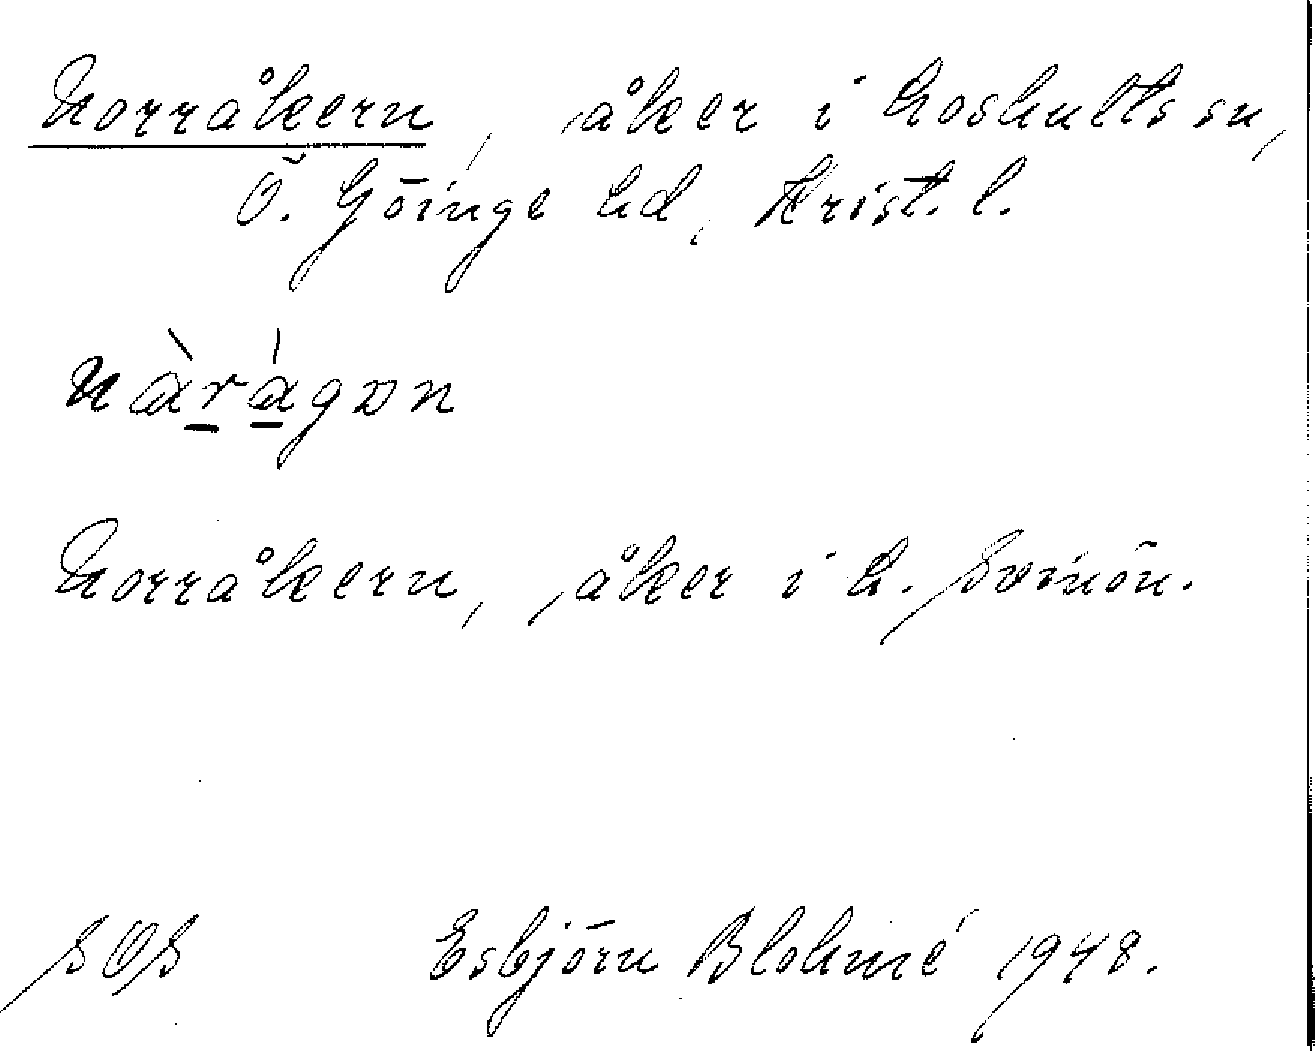 Norråkern, åker i Loshults sn,
Ö. Göinge hd, Krist. l.
nàr̲á̲gɒn
Norråkern, åker i L. Svinön.
SOS Esbjörn Blohmé 1948.